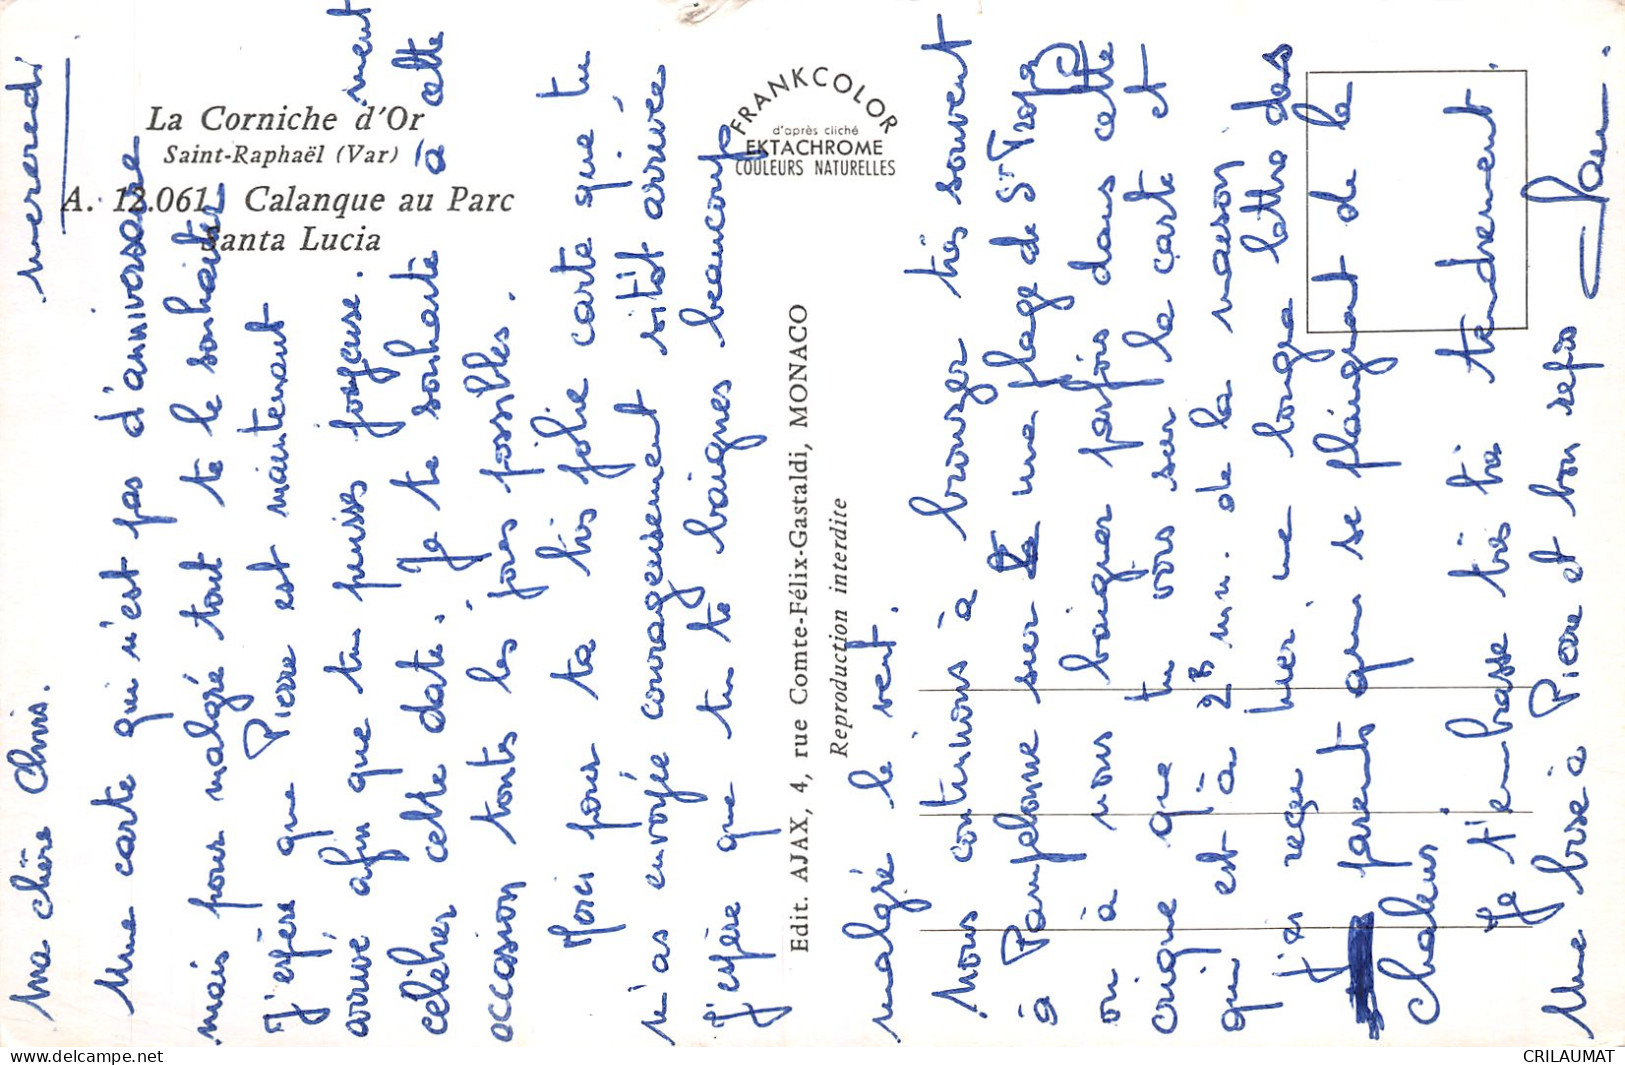 La Corniche d'Or
Saint-Raphaël (Var)
A. 12.061 Calanque au Parc
Santa Lucia
FRANKCOLOR
d'après cliché
EKTACHROME
COULEURS NATURELLES
Edit. AJAX, 4, rue Comte-Félix-Gastaldi, MONACO
Reproduction interdite
mercredi
Ma chère Chris.
Une carte qui n'est pas d'anniversaire
mais pour malgré tout te le souhaiter
J'espère que Pierre est maintenant
arrivé afin que tu puisses joyeuse . ment
célébrer cette date. Je te souhaite à cette
occasion toutes les joies possibles.
Merci pour ta très jolie carte que tu
m'as envoyée courageusement sitôt arrivée
J'espère que tu te baignes beaucoup
malgré le vent.
Nous continuons à bronzer très souvent
à Pampelonne sur une plage de St Trop
où à nous baigner parfois dans cette
crique que tu vois sur la carte et
qui est à 2 mn. de la maison
J'ai reçu hier une longue lettre des
parents qui se plaignent de la
chaleur
Je t'embrasse très très tendrement.
Une bise à Pierre et bon repos
CRILAUMAT